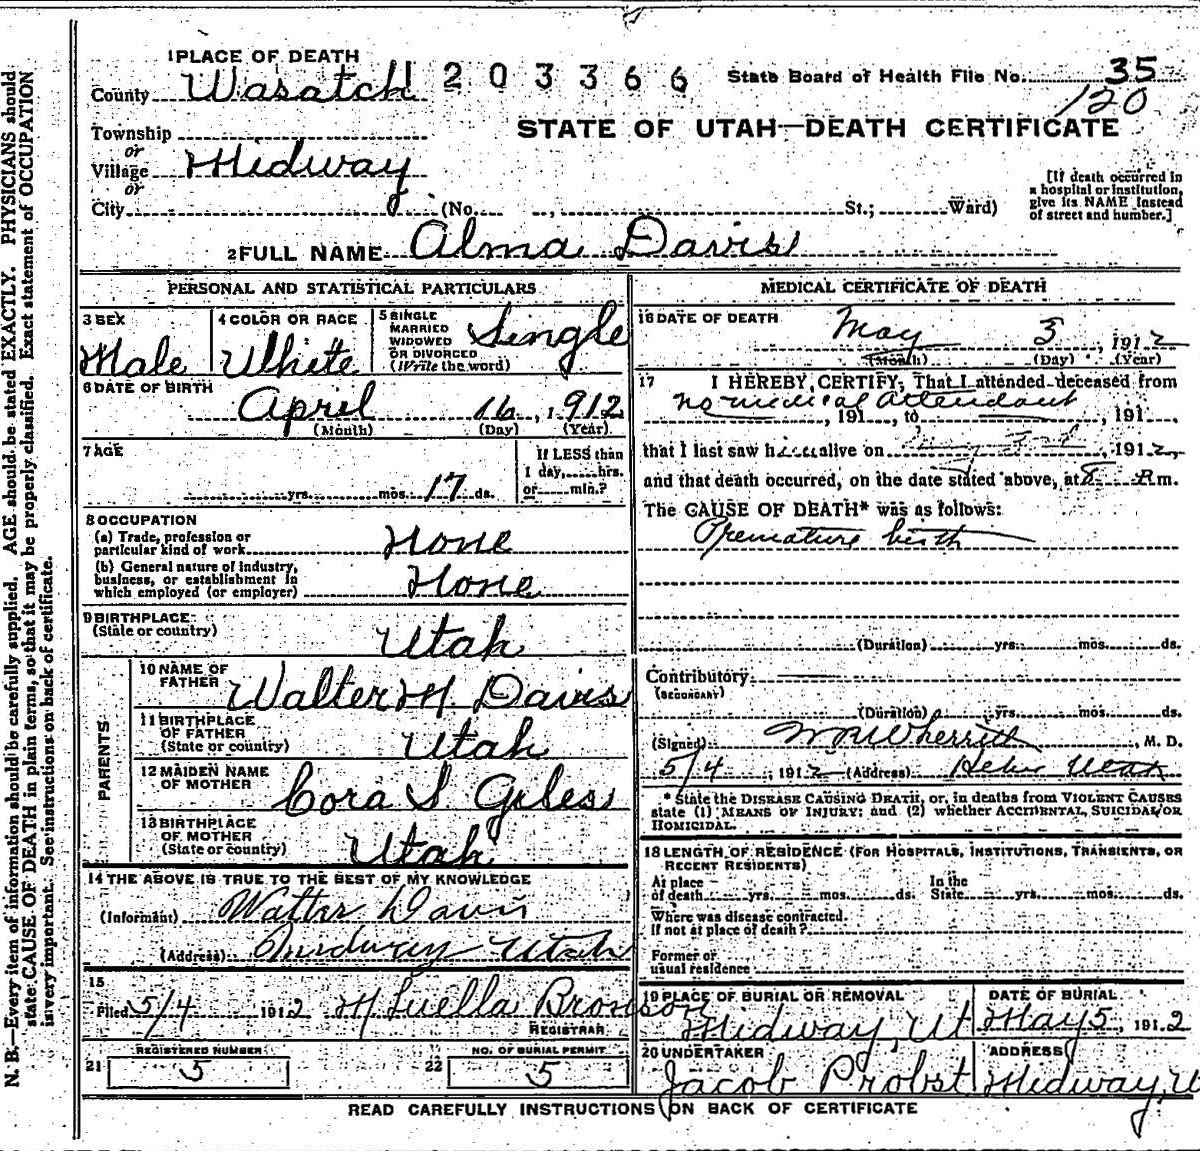 1 PLACE OF DEATH
County Wasatch
1203366
State Board of Health File No. 35
120
Township
or
Village Midway
or
City (No. , St.; Ward)
STATE OF UTAH—DEATH CERTIFICATE
[If death occurred in
a hospital or institution,
give its NAME instead
of street and number.]
2 FULL NAME Alma Davis
PERSONAL AND STATISTICAL PARTICULARS
3 SEX
Male
4 COLOR OR RACE
White
5 SINGLE
MARRIED
WIDOWED
OR DIVORCED
(Write the word)
Single
6 DATE OF BIRTH
April 16, 1912
(Month) (Day) (Year)
7 AGE
yrs. mos. 17 ds.
If LESS than
1 day, hrs.
or min.?
8 OCCUPATION
(a) Trade, profession or
particular kind of work None
(b) General nature of industry,
business, or establishment in
which employed (or employer) None
9 BIRTHPLACE
(State or country) Utah
PARENTS
10 NAME OF
FATHER Walter M Davis
11 BIRTHPLACE
OF FATHER
(State or country) Utah
12 MAIDEN NAME
OF MOTHER Cora S Giles
13 BIRTHPLACE
OF MOTHER
(State or country) Utah
14 THE ABOVE IS TRUE TO THE BEST OF MY KNOWLEDGE
(Informant) Walter Davis
(Address) Midway Utah
15
Filed 5/4 1912 M Luella Bronson
REGISTRAR
21 REGISTERED NUMBER
5
22 NO. OF BURIAL PERMIT
5
MEDICAL CERTIFICATE OF DEATH
16 DATE OF DEATH
May 3, 1912
(Month) (Day) (Year)
17 I HEREBY CERTIFY, That I attended deceased from
no medical attendant, 191 , to , 191
that I last saw h alive on May 3rd, 1912
and that death occurred, on the date stated above, at 8 P.m.
The CAUSE OF DEATH* was as follows:
Premature birth
(Duration) yrs. mos. ds.
Contributory
(SECONDARY)
(Duration) yrs. mos. ds.
(Signed) Wherritt, M. D.
5/4, 1912 (Address) Heber Utah
* State the DISEASE CAUSING DEATH, or, in deaths from VIOLENT CAUSES
state (1) MEANS OF INJURY; and (2) whether ACCIDENTAL, SUICIDAL, OR
HOMICIDAL.
18 LENGTH OF RESIDENCE (FOR HOSPITALS, INSTITUTIONS, TRANSIENTS, OR
RECENT RESIDENTS)
At place
of death yrs. mos. ds.
In the
State yrs. mos. ds.
Where was disease contracted.
If not at place of death?
Former or
usual residence
19 PLACE OF BURIAL OR REMOVAL
Midway, Ut
DATE OF BURIAL
May 5, 1912
20 UNDERTAKER
Jacob Probst
ADDRESS
Midway, U
READ CAREFULLY INSTRUCTIONS ON BACK OF CERTIFICATE
N. B.—Every item of information should be carefully supplied. AGE should be stated EXACTLY. PHYSICIANS should
state CAUSE OF DEATH in plain terms, so that it may be properly classified. Exact statement of OCCUPATION
is very important. See instructions on back of certificate.